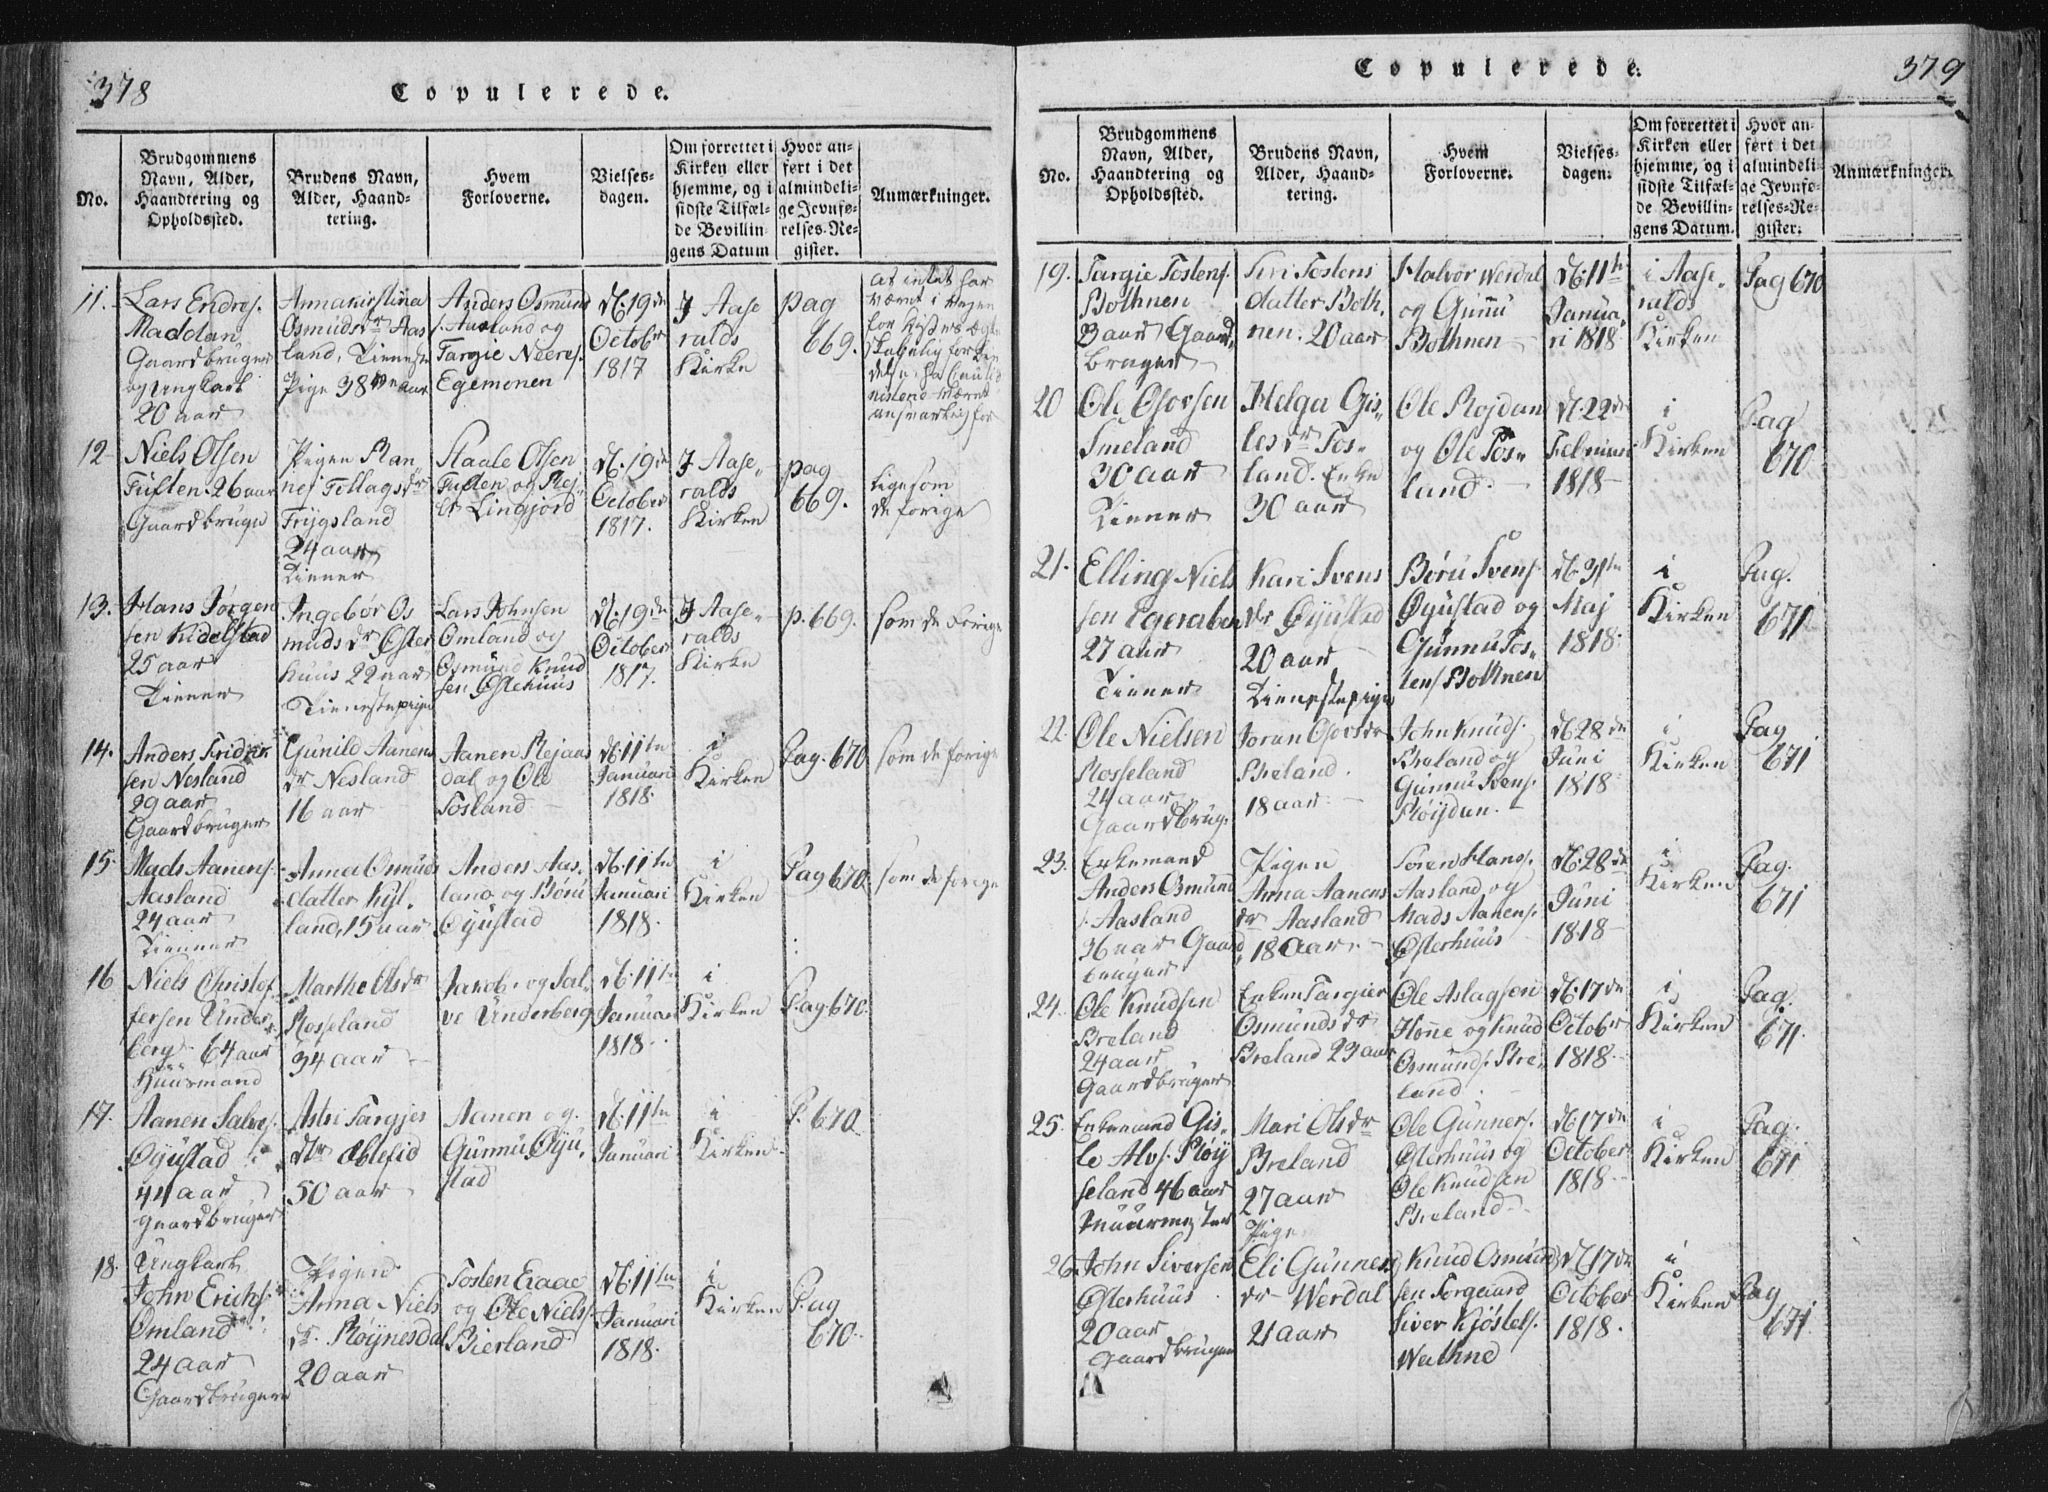 378
Copulerede.
No.
Brudgommens
Navn, Alder,
Haandtering og
Opholdssted.
Brudens Navn,
Alder, Haand-
tering.
Hvem
Forloverne.
Vielses-
dagen.
Om forrettet i
Kirken eller
hjemme, og i
sidste Tilfæl-
de Bevillin-
gens Datum
Hvor an-
ført i det
almindeli-
ge Jevnfø-
relses-Re-
gister.
Anmærkninger.
11.
Lars Endres.
Maddan
Gaardbruger
og Ungkarl
20 aar
Annakirstina
Osmuds dr Aas
land, Tieneste
Pige 38 aar
Anders Osmund
s. Aasland og
Targie Neeres.
Egemonen
d. 19de
October
1817
I Aase
ralds
Kirke
pag
669.
at intet har
været i veyen
for
12
Niels Olsen
Tuften 26 aar
Gaardbruger
Pigen Ran
nei Tellags dr
Frÿgsland
24 aar
Tiener
Staale Olsen
Tuften og
Lingjord
d. 19de
October
1817.
I Aase,,
ralds
Kirken
pag
669.
ligesom
de forige
13.
Hans Jørgen
sen Kidelstad
25 aar
Tiener
Ingebör Os
muds dr Øster
huus 22 aar
Tienestepige
Lars Johnsen
Omland og
Osmund Knud
sen Østehuus
d. 19de
October
1817.
I Aase-
ralds
Kirke
p. 669.
som de forige
14.
Anders Fridrik
sen Nesland
29 aar
Gaardbruger
Gunild Aanen
dr Nesland
16 aar
Aanen Rejaas
dal og Ole
Tosland
d. 11te
Januari
1818
i
Kirken
Pag. 670
som de forige
15.
Mads Aanens.
Aasland
24 aar
Tienner
Anna Osmuds
datter Kyl-
land, 15 aar
Anders Aas-
land og Börü
Öÿustad
d. 11te
Januari
1818.
i
Kirken
Pag 670
som de forige
16
Niels Christof-
fersen Under-
berg 64 aar
Huusmand
Marthe Ols dr
Rosseland
34 aar
Jacob og Sal-
ve Underberg
d. 11te
Januari
1818
i
Kirken
Pag 670.
17.
Aanen Salves.
Öÿustad
44 aar
Gaardbruger
Astri Targjes
dtr Oblesid
50 aar
Aanen og
Gunnu Öÿu-
stad
d. 11te
Januari
i
Kirken
P. 670
18.
Ungkarl
John Erichs.
Omland
24 aar
Gaardbruger
Pigen
Anna Niels
dr. Röÿnesdal
20 aar
Tosten Eraae
og Ole Niels.
Bierland
d. 11te
Januari
1818.
i
Kirken
Pag
670.
379
Copulerede.
No.
Brudgommens
Navn, Alder,
Haandtering og
Opholdssted.
Brudens Navn,
Alder, Haand-
tering.
Hvem
Forloverne.
Vielses-
dagen.
Om forrettet i
Kirken eller
hjemme, og i
sidste Tilfæl-
de Bevillin-
gens Datum.
Hvor an-
ført i det
almindeli-
ge Jevnfø-
relses-Re-
gister.
Anmærkninger.
19.
Targie Tostens.
Bothnen
aar Gaard,
bruger
Siri Tostens
datter Both,
nen. 20 aar
Halvor Werdal
og Gunu
Bothnen
d. 11te
Janua,
ri 1818
i Aase,
ralds
Kirken
Pag 670
20
Ole Osovsen
Smeland
30 aar
Tienner
Helga Gis,,
les dr Fos,,
land. Enke
30 aar
Ole Rojdan
og Ole Fos,,
land.
d. 22de
Februari
1818
i
Kirken
Pag
670
21.
Elling Niels
sen Egeraben
27 aar
Tienner
Kari Svens
dr Öÿustad
20 aar
Tienestepige
Börü Svens.
Öÿustad og
Gunnu Tos,,
tens Bothnen
d. 31te
Maj
1818.
i
Kirken
Pag.
671
22.
Ole Nielsen
Rosseland
24 aar
Gaardbrug.
Joran Osovs dr
Breland.
18 aar
John Knuds.
Breland og
Gunnu Svens.
Röÿdan.
d. 28de
Juni
1818
i
Kirken
Pag
671
23.
Enkemand
Anders Osmund
s. Aasland
36 aar Gaard
bruger
Pigen
Anna Aanens
dr Aasland
18 aar.
Soren Hans.
Aasland og
Mads Aanens.
Østerhuus
d. 28de
Juni
1818
i
Kirken
Pag.
671
24.
Ole Knudsen
Breland
24 aar
Gaardbruger
Enken Targier
Osmunds dr
Breland 23 aar
Ole Aslagsen
Honne og Knud
Osmunds. Bre-
land
d. 17de
Octobr
1818
i
Kirken
Pag.
671.
25.
Enkemand Gis,
le Alvs. Röÿ
seland 46 aar
Mari Ols dr
Breland
27 aar
Pige
Ole Gunners.
Østerhuus og
Ole Knudsen
Breland
d. 17de
October
1818
i
Kirken
Pag.
671
26.
John Siversen
Østerhuus
20 aar
Gaardbruger
Eli Gunners
dr Werdal
21 aar
Knud Osmund
sen Torgaard
Siver Kjöstels.
Wathne
d. 17de
October
1818.
i
Kirken
Pag
671.